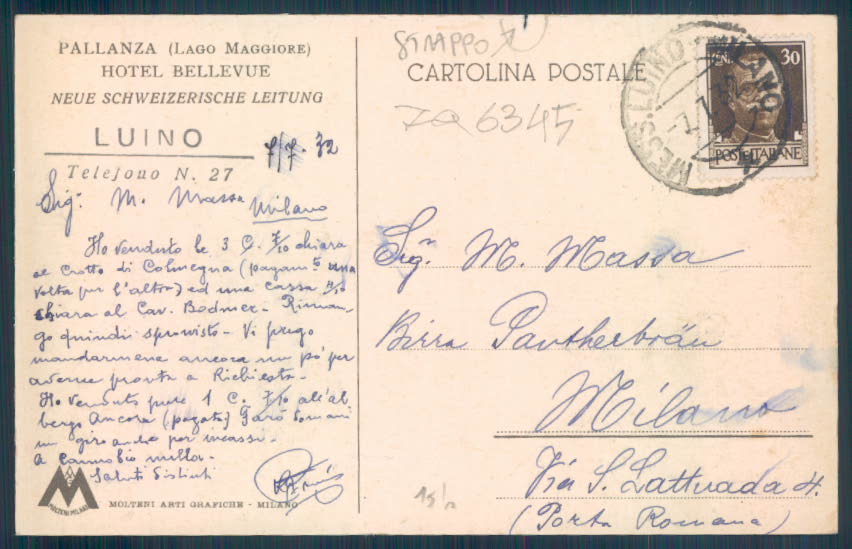 PALLANZA (LAGO MAGGIORE)
HOTEL BELLEVUE
NEUE SCHWEIZERISCHE LEITUNG
LUINO
7/7-32
Telefono N. 27
Sig. M. Massa
Milano
Ho venduto le 3 C. 7/10 chiara
al Crotto di Colmegna (pagamto una
volta per l'altra) ed una cassa
chiara al Cav. Bodmer - Riman-
go quindi sprovvisto - Vi prego
mandarmene ancora un pò per
averne pronta a Richiesta -
Ho venduto pure 1 C. 7/10 all'al
bergo Ancora (pagata) Farò domani
un giro anche per incassi -
A Cannobio nulla -
Saluti Distinti
M
MOLTENI MILANO
MOLTENI ARTI GRAFICHE - MILANO
STRAPPO
CARTOLINA POSTALE
6345
MESS. LUINO MILANO
CENT. 30
POSTE ITALIANE
Sig. M. Massa
Birra Pantherbräu
Milano
Via S. Lattuada 4.
(Porta Romana)